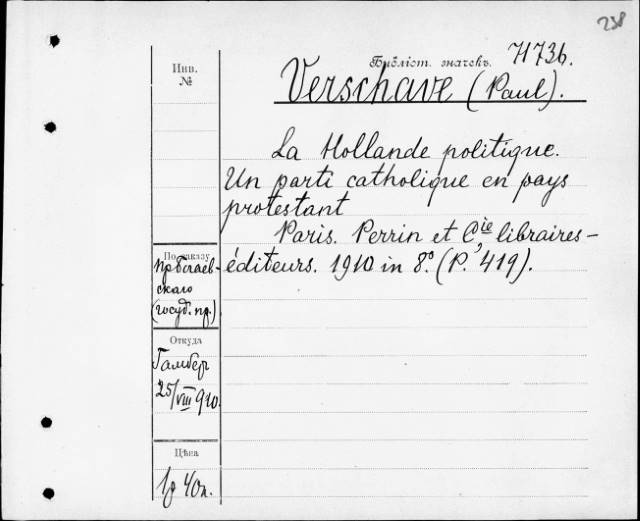 238
Библіот. значекъ. 71736.
Инв.
№
Verschave (Paul).
La Hollande politique.
Un parti catholique en pays
protestant
Paris. Perrin et Cie, libraires-
éditeurs. 1910 in 8º. (P. 419).
По заказу
вскаго
(госуд. пр.)
Откуда
25/VIII 910.
Цѣна
1р 40к.